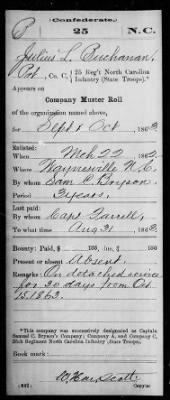 Confederate.
B 25 N.C.
Julius L. Buchanan,
Pvt., Co. C, 25 Reg't North Carolina
Infantry (State Troops).*
Appears on
Company Muster Roll
of the organization named above,
for Sept & Oct, 1863.
Enlisted:
When Mch 22, 1862.
Where Waynesville N.C.
By whom Sam C. Bryson
Period 3 years.
Last paid:
By whom Capt Farrell
To what time Aug 31, 1863.
Bounty: Paid $ 100; due $ 100
Present or absent Absent.
Remarks: On detached service
for 30 days from Oct.
15, 1863.
*This company was successively designated as Captain
Samuel C. Bryson's Company; Company A, and Company C,
25th Regiment North Carolina Infantry (State Troops).
Book mark:
(642)
Copyist.